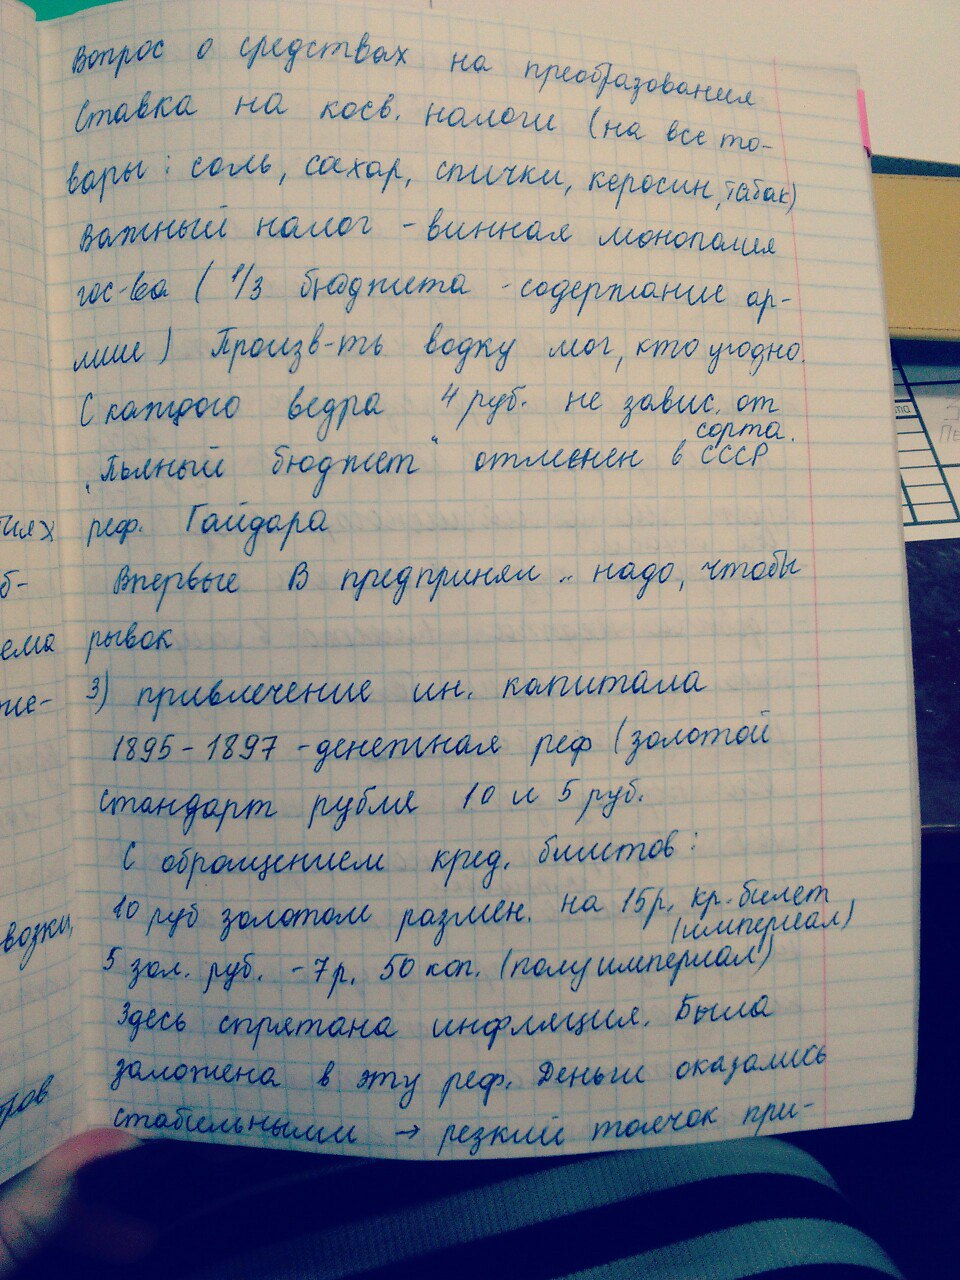 Вопрос о средствах на преобразования
Ставка на косв. налоги (на все то-
вары: соль, сахар, спички, керосин, табак)
Важный налог - винная монополия
гос-ва (1/3 бюджета - содержание ар-
мии) Произв-ть водку мог, кто угодно.
С каждого ведра 4 руб. не завис. от
сорта.
"Пьяный бюджет" отменен в СССР
реф. Гайдара
Впервые В предпринял .. надо, чтобы
рывок
3) привлечение ин. капитала
1895-1897 - денежная реф (золотой
стандарт рубля 10 и 5 руб.
С обращением кред. билетов:
10 руб золотом размен. на 15р. кр. билет
(империал)
5 зол. руб. - 7р. 50 коп. (полуимпериал)
Здесь спрятана инфляция. Была
заложена в эту реф. Деньги оказались
стабильными → резкий толчок при-
тиях
б-
ема
же-
возки,